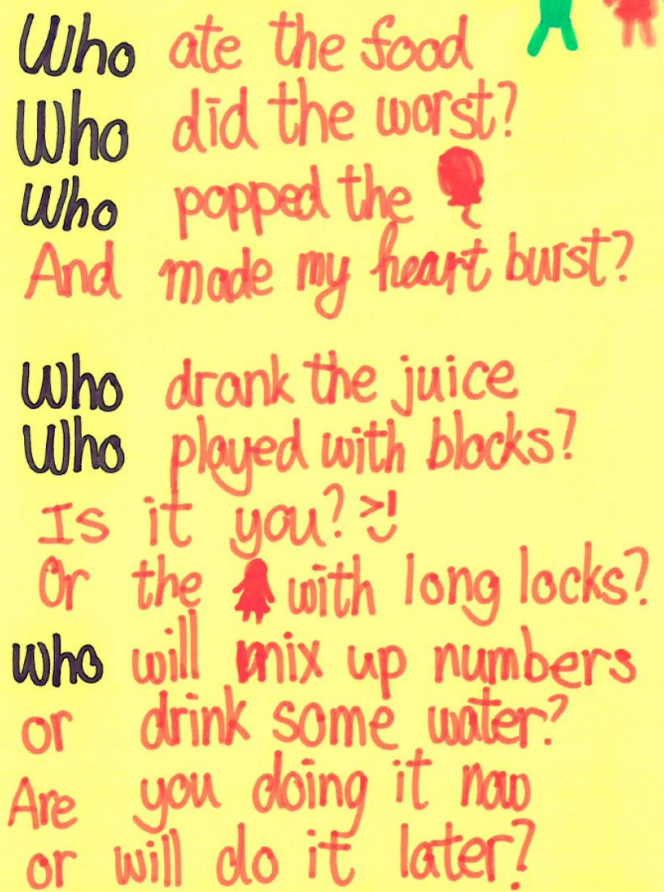 Who ate the food
Who did the worst?
Who popped the
And made my heart burst?
Who drank the juice
Who played with blocks?
Is it you?
Or the with long locks?
who will mix up numbers
or drink some water?
Are you doing it now
or will do it later?